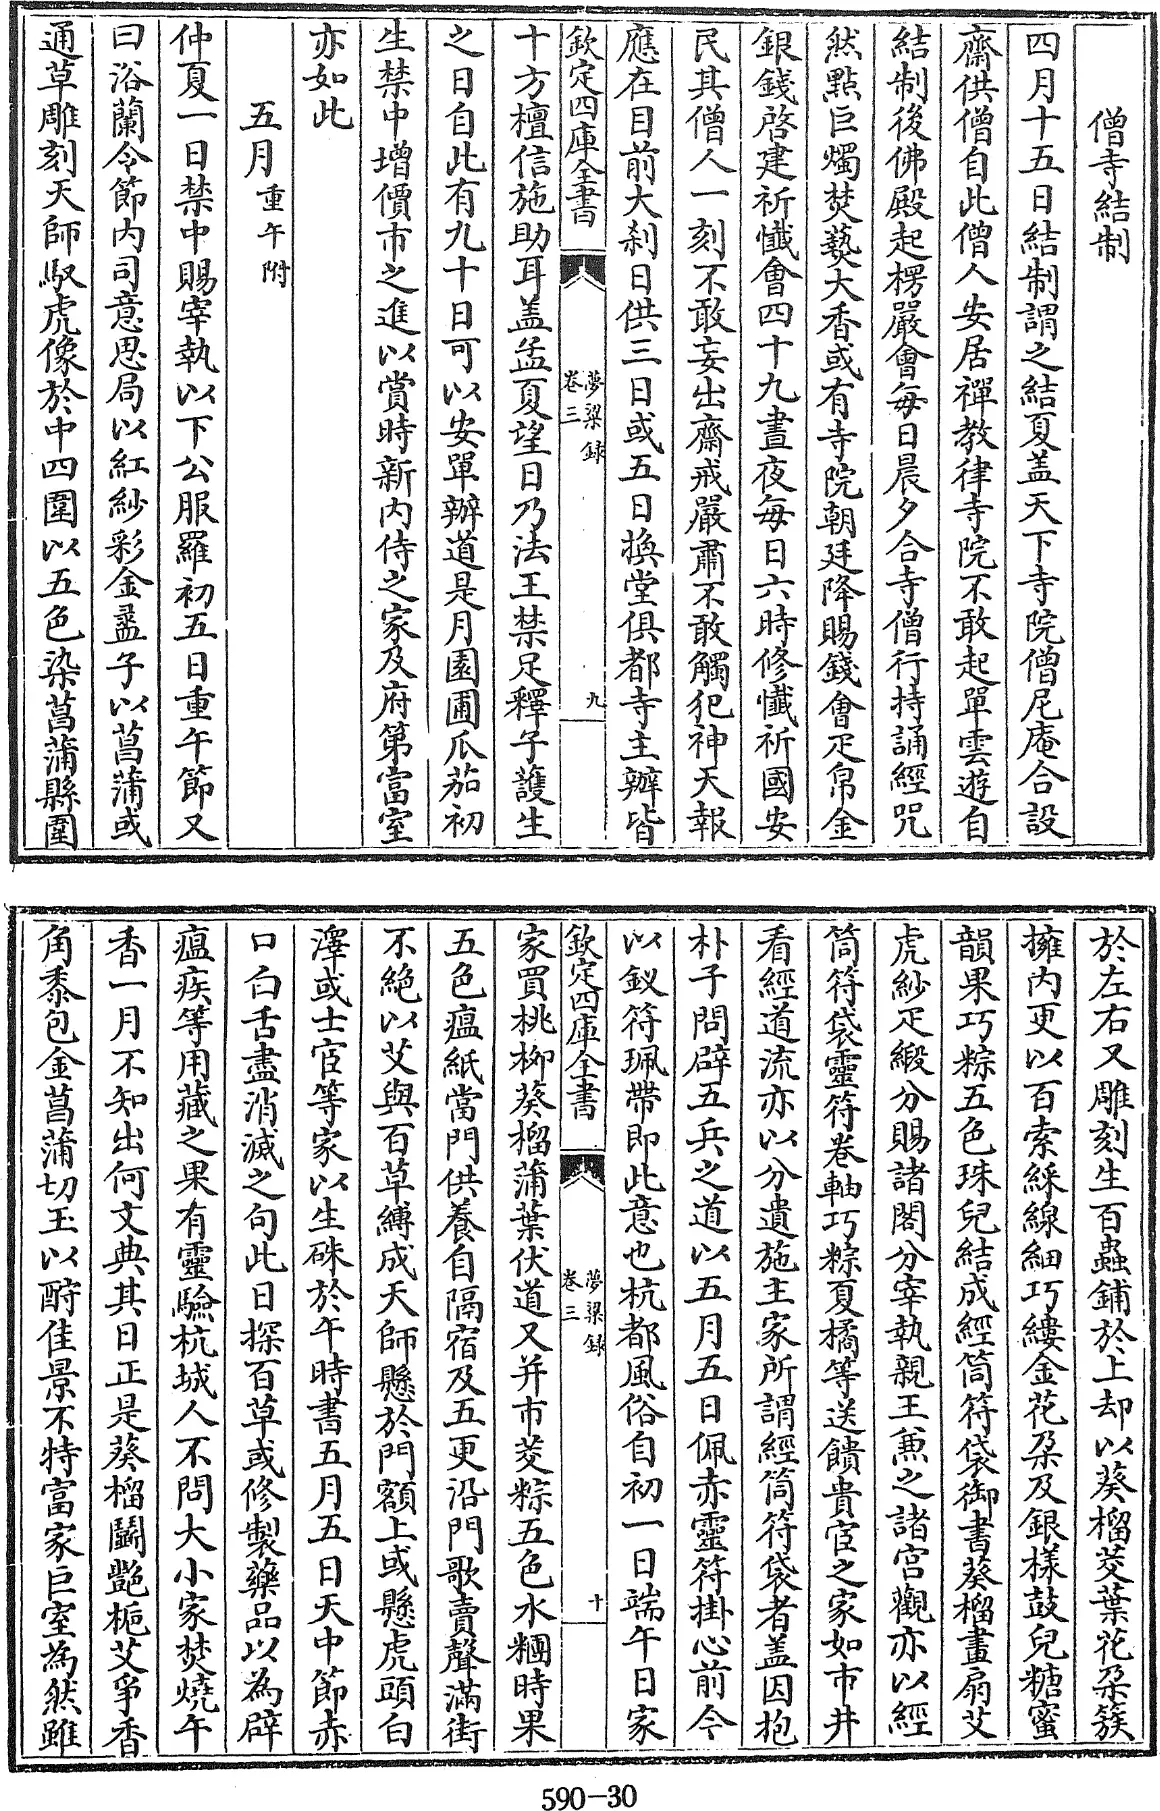 僧寺結制
四月十五日結制謂之結夏盖天下寺院僧尼庵合設
齋供僧自此僧人安居禪教律寺院不敢起單雲遊自
結制後佛殿起楞嚴會每日晨夕合寺僧行持誦經咒
然點巨燭焚爇大香或有寺院朝廷降賜錢會疋帛金
銀錢啓建祈懺會四十九晝夜每日六時修懺祈國安
民其僧人一刻不敢妄出齋戒嚴肅不敢觸犯神天報
應在目前大刹日供三日或五日換堂俱都寺主辦皆
欽定四庫全書 夢粱録 卷三 九
十方檀信施助耳盖孟夏望日乃法王禁足釋子護生
之日自此有九十日可以安單辦道是月園圃瓜茄初
生禁中增價市之進以賞時新内侍之家及府第富室
亦如此
五月 重午附
仲夏一日禁中賜宰執以下公服羅初五日重午節又
曰浴蘭令節内司意思局以紅紗彩金盝子以菖蒲或
通草雕刻天師馭虎像於中四圍以五色染菖蒲縣圍
於左右又雕刻生百蟲鋪於上却以葵榴艾葉花朶簇
擁内更以百索綵線細巧縷金花朶及銀樣鼓兒糖蜜
韻果巧粽五色珠兒結成經筒符袋御書葵榴畫扇艾
虎紗疋緞分賜諸閤分宰執親王兼之諸宫觀亦以經
筒符袋靈符卷軸巧粽夏橘等送饋貴宦之家如市井
看經道流亦以分遺施主家所謂經筒符袋者盖因抱
朴子問辟五兵之道以五月五日佩赤靈符掛心前今
以釵符珮帶即此意也杭都風俗自初一日端午日家
欽定四庫全書 夢粱録 卷三 十
家買桃柳葵榴蒲葉伏道又并市茭粽五色水糰時果
五色瘟紙當門供養自隔宿及五更沿門歌賣聲滿街
不絶以艾與百草縛成天師懸於門額上或懸虎頭白
澤或士宦等家以生硃於午時書五月五日天中節赤
口白舌盡消滅之句此日採百草或修製藥品以為辟
瘟疾等用藏之果有靈驗杭城人不問大小家焚燒午
香一月不知出何文典其日正是葵榴鬬艷梔艾爭香
角黍包金菖蒲切玉以酧佳景不特富家巨室為然雖
590-30